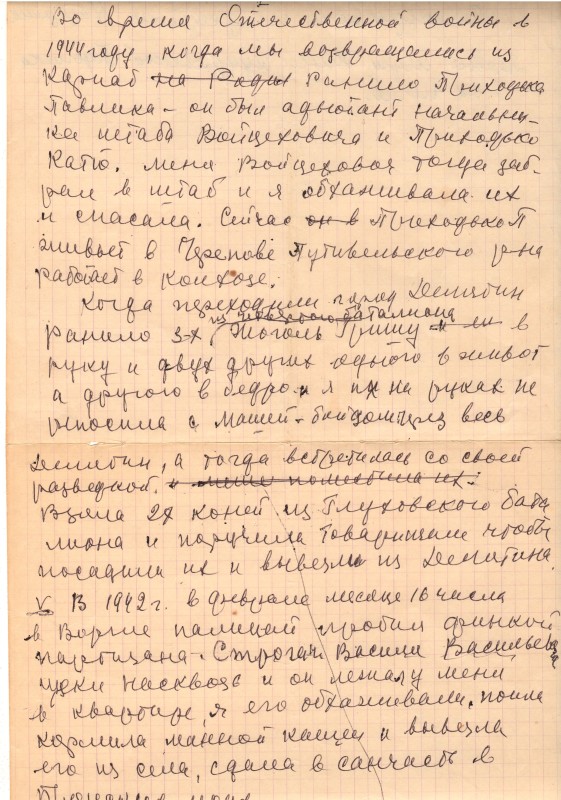 Во время Отечественной войны в
1944 году, когда мы возвращались из
Карпат на Родин ранило Приходька
Павлика - он был адьютант начальни-
ка штаба Войцеховича и Приходько
Катю. Меня Войцехович тогда заб-
рал в штаб и я обхаживала их
и спасала. Сейчас он в Приходько П
живьет в Черепове Путивельского р-на
работает в колхозе.
Когда переходили город Делятин
из третьего баталиона
ранило 3-х Моголь Гришу и в
руку и двух других одного в живот
а другого в бедро. и я их на руках пе
реносила с Машей - бойцом через весь
Делятин, а тогда встретилась со своей
разведкой. и меня поместила их.
Взяла 2х коней из Глуховского бата
лиона и поручила товарищам чтобы
посадили их и вывезли из Делятина.
V В 1942 г. в феврале месяце 16 числа
в Воргле полицай пробил финкой
партизана - Строган Василя Васильевича
щеки насквозь и он лежал у мени
в квартире, я его обхаживала, поила
кормила манной кашей и вывезла
его из села, сдала в санчасть в